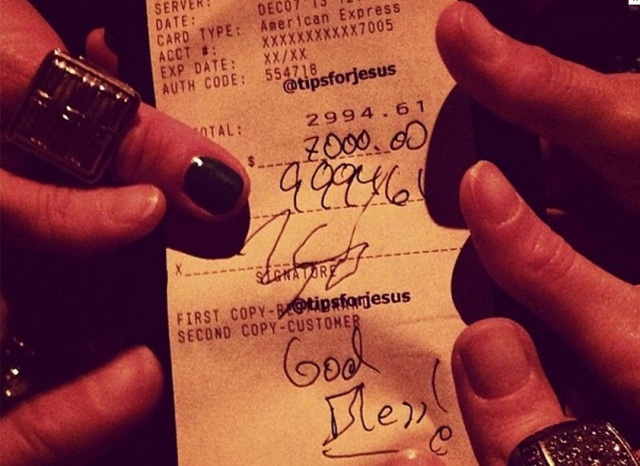 SERVER:
DATE: DEC07'13
CARD TYPE: American Express
ACCT #: XXXXXXXXXXX7005
EXP DATE: XX/XX
AUTH CODE: 554718
@tipsforjesus
OTAL: 2994.61
$ 7000.00
9994.61
X
SIGNATURE
@tipsforjesus
FIRST COPY-RE
SECOND COPY-CUSTOMER
God
Bless!